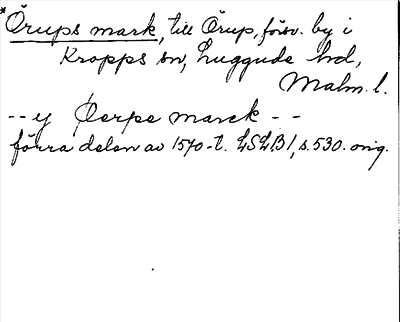 *Örups mark, till Örup, försv. by i
Kropps sn, Luggude hd,
Malm. l.
-- y Øerpe marck --
förra delen av 1570-t. LSLB 1, s. 530. orig.